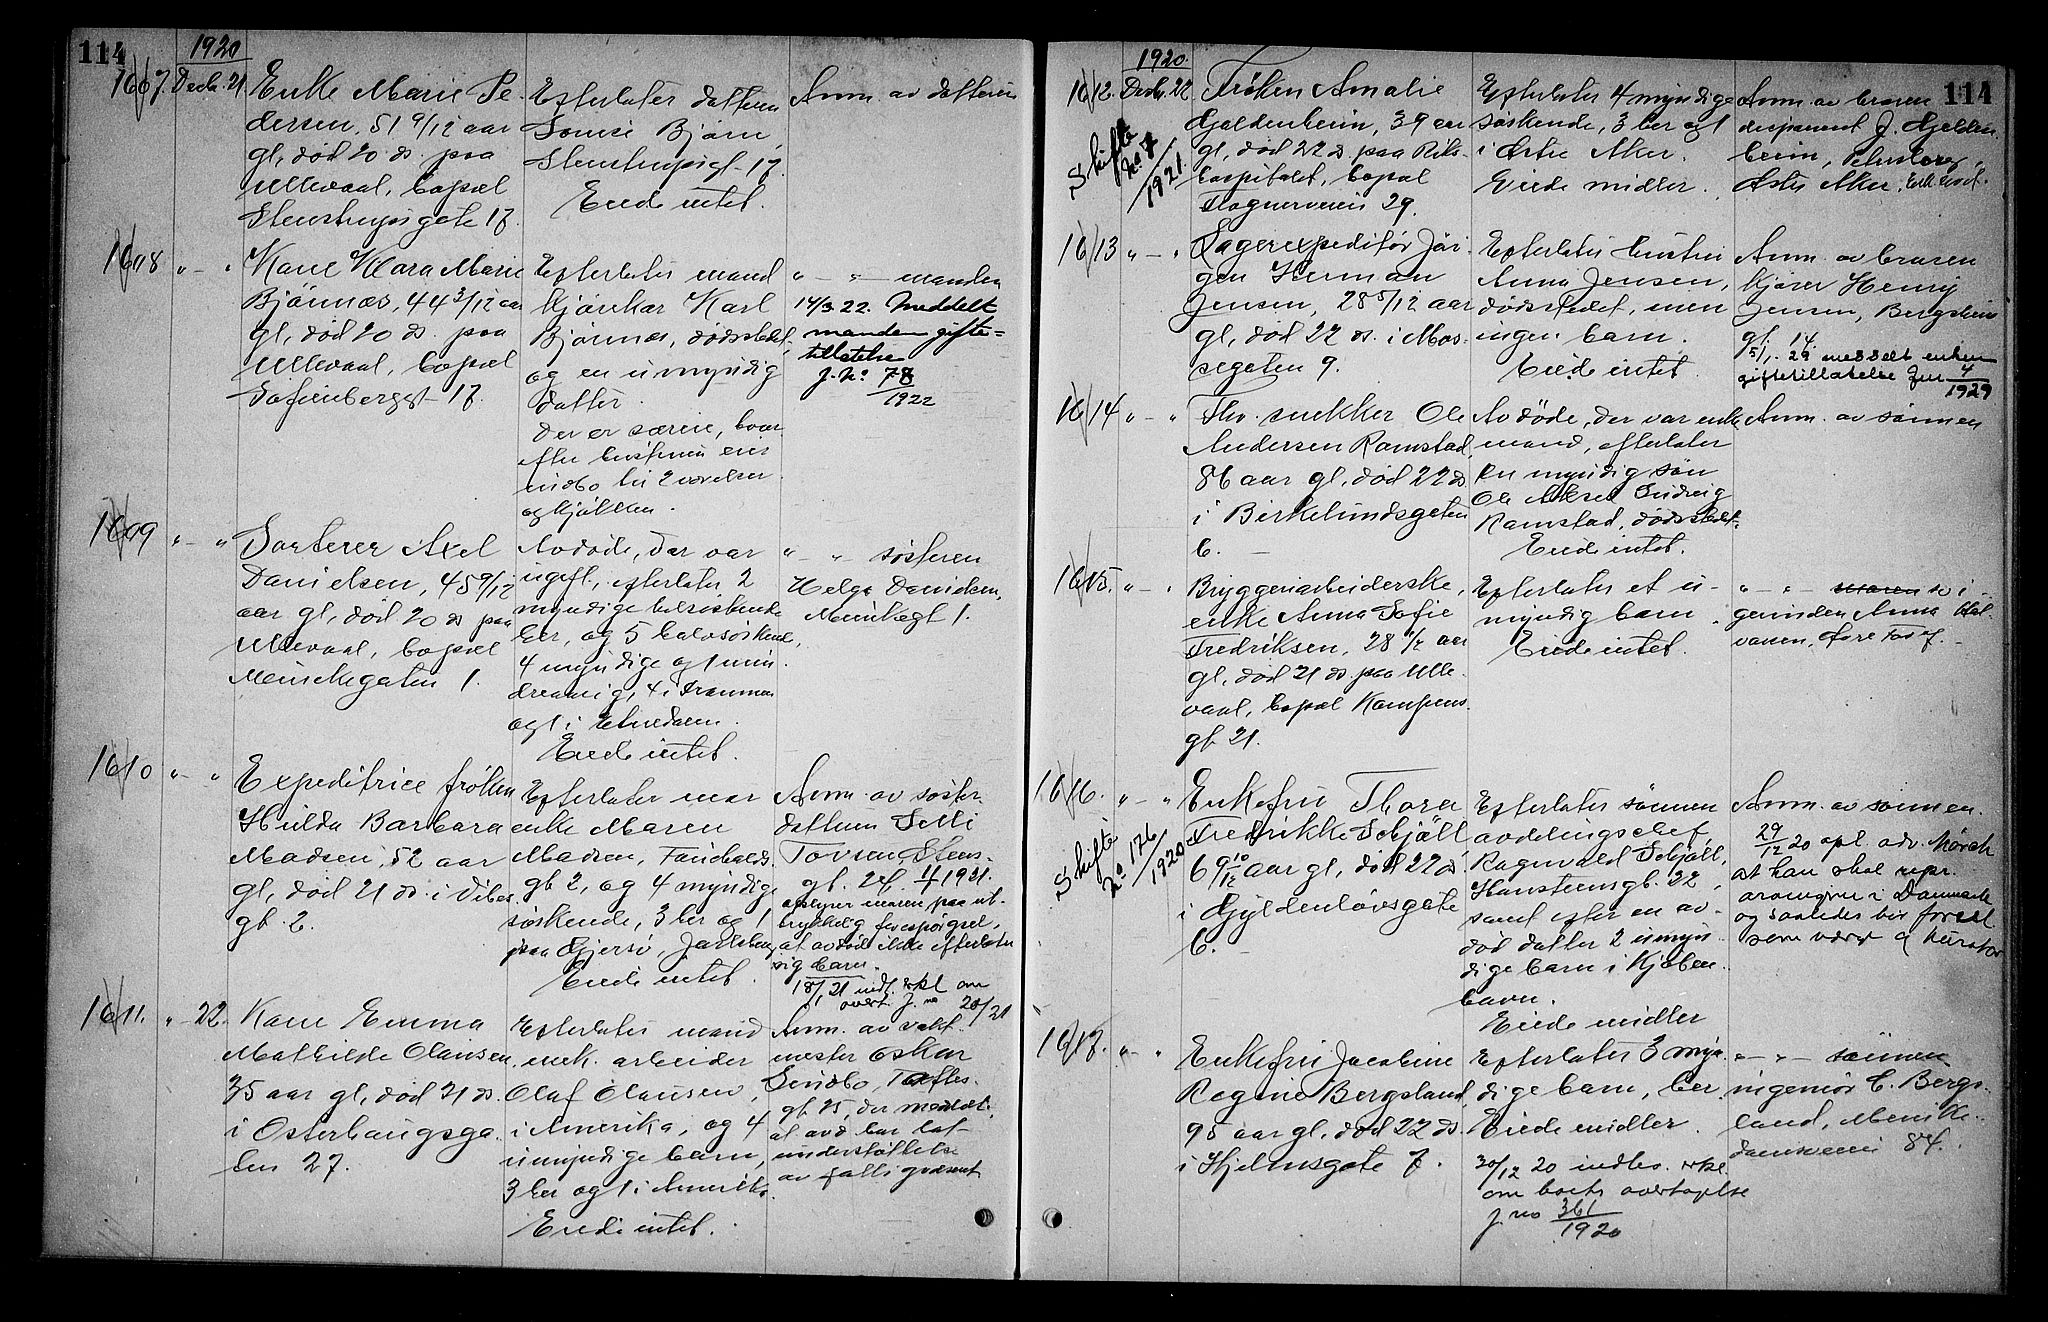 114
1920
1607. Decb. 21.
Enke Marie Pe-
dersen, 51 9/12 aar
gl, död 20 ds. paa
Ullevaal, bopæl
Stenstrupsgate 17.
Efterlater datteren
Louise Björn,
Stenstrupsgt. 17.
Eiede intet.
Anm. av datteren
1608 " — "
Kone Klara Marie
Björnnes, 44 3/12 aar
gl, död 20 ds. paa
Ullevaal, bopæl
Sofienberggt 17.
Efterlater mand
Karl
Björnnes, dödsstedet,
og en umyndig
datter.
Der er særeie, hvor-
efter hustruen eier
indbo til 2 værelser
og kjökken.
" — " — manden
14/3. 22. Meddelt
manden gifte-
tillatelse
J. No. 78
1922
1609 " — "
Sorterer Axel
Danielsen, 45 9/12
aar gl, död 20 ds paa
Ullevaal, bopæl
Meinickegaten 1.
Avdöde, der var
ugift, efterlater 2
myndige helsöskende
her, og 5 halvsöskende,
4 myndige og 1 min-
dreaarig, 4 i Drammen
og 1 i
Eiede intet.
" — " sösteren
Helga Danielsen,
Meinickegt 1.
1610 " — "
Expeditrice fröken
Hulda Barbara
Madsen, 52 aar
gl, död 21 ds. i Vibes-
gt. 2.
Efterlater mor
enke Maren
Madsen, Faucholds-
gt 2, og 4 myndige
söskende, 3 her og 1
paa Gjersö, Jarlsberg
Eiede intet.
Anm. av söster-
datteren Selli
Torsen, Stens-
gt. 24. 4/1 1921.
oplyser moren paa ut-
trykkelig forespörgsel,
at avdöde ikke efterlater
sig barn.
18/1 21 indl. erkl om
overt. J. no 20/21
1611. " 22.
Kone Emma
Mathilde Olausen,
35 aar gl, död 21 ds.
i Osterhausga-
ten 27.
Efterlater mand
mek. arbeider
Olaf Olausen,
i Amerika, og 4
umyndige barn,
3 her og 1 i Amerika.
Eiede intet.
Anm. av vakt-
mester Oskar
Sundbo, Toftes-
gt. 25, der meddelt
at avd har hat
understöttelse
av fattigvæsenet
114
1920.
1612. Decbr. 22
Skifte
No 7
1921.
Fröken Amalie
Gjeldenheim, 39 aar
gl, död 22 ds paa Riks-
hospitalet, bopæl
Frognerveien 29.
Efterlater 4 myndige
söskende, 3 her og 1
i Östre Aker.
Eiede midler.
Anm. av broren
disponent J. Gjelden-
heim,
Östre Aker.
1613 " — "
Lagerexpeditör Jör-
gen Herman
Jensen, 28 5/12 aar
gl, död 22 ds. i Mos-
segaten 9.
Efterlater hustru
Anna Jensen,
dödsstedet, men
ingen barn.
Eiede intet.
Anm. av broren
kjörer Henry
Jensen, Bergsliens
gt. 14.
5/1. 29 meddelt enken
giftetillatelse Jnr 4
1929
1614 " — "
Fhv. snekker Ole
Andersen Ramstad,
86 aar gl, död 22 ds
i Birkelundsgaten
6. —
Avdöde, der var enke-
mand, efterlater
en myndig sön
Ole Ludvig
Ramstad, dödsstedet.
Eiede intet.
Anm. av sönnen
1615. " — "
Bryggeriarbeiderske,
enke Anna Sofie
Fredriksen, 28 aar
gl, död 21 ds. paa Ulle-
vaal, bopæl Kampens-
gt. 21.
Efterlater et u-
myndig barn.
Eiede intet.
" — " — svi-
gerinden Anna
1616. " — "
Skifte
No 176
1920
Enkefru Thora
Fredrikke Schjöll
69 10/12 aar gl, död 22 ds.
i Gyldenlövsgate
6. —
Efterlater sönnen
avdelingschef
Ragnvald Schjöll,
Hansteensgt. 22,
samt efter en av-
död datter 2 umyn-
dige barn i Kjöben-
havn.
Eiede midler
Anm. av sönnen.
29/12 20 opl. adv. Mörch
at han skal repr.
arvingene i Danmark
og saaledes bör foresl.
som værge og kurator
1617. " — "
Enkefru Jacobine
Regine Bergsland,
95 aar gl, död 22 ds.
i Hjelmsgate 7.
Efterlater 3 myn-
dige barn, her.
Eiede midler.
30/12 20 indlev. erkl.
om boets overtagelse
J. no 361
1920
" — " — sönnen
ingeniör C. Bergs-
land, Munke-
damsveien 84.